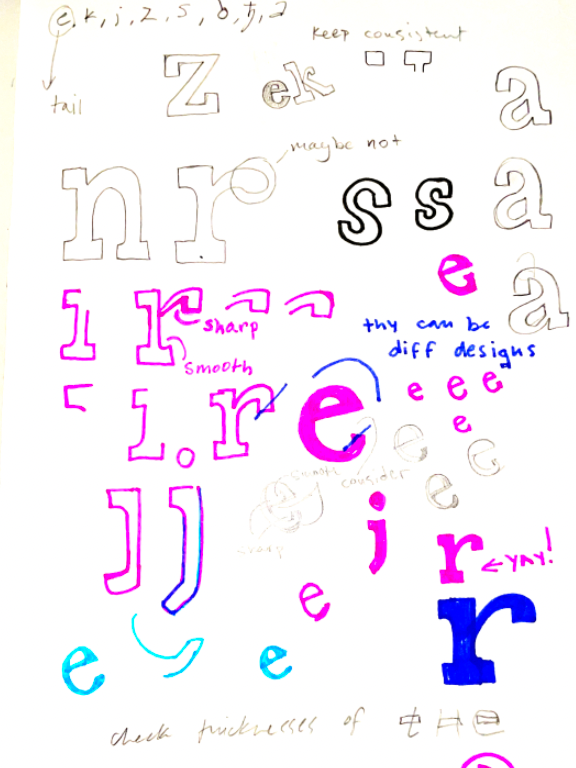 e, k, j, z, s, b, ђ, a
keep consistent
tail
z
e k
a
maybe not
n r
s s
a
e
a
ı r
sharp
thy can be
diff designs
smooth
ı . r e e e e
e
e e
smooth
consider
e
j j
j
r ← YAY!
e
r
e e
check thicknesses of t H e